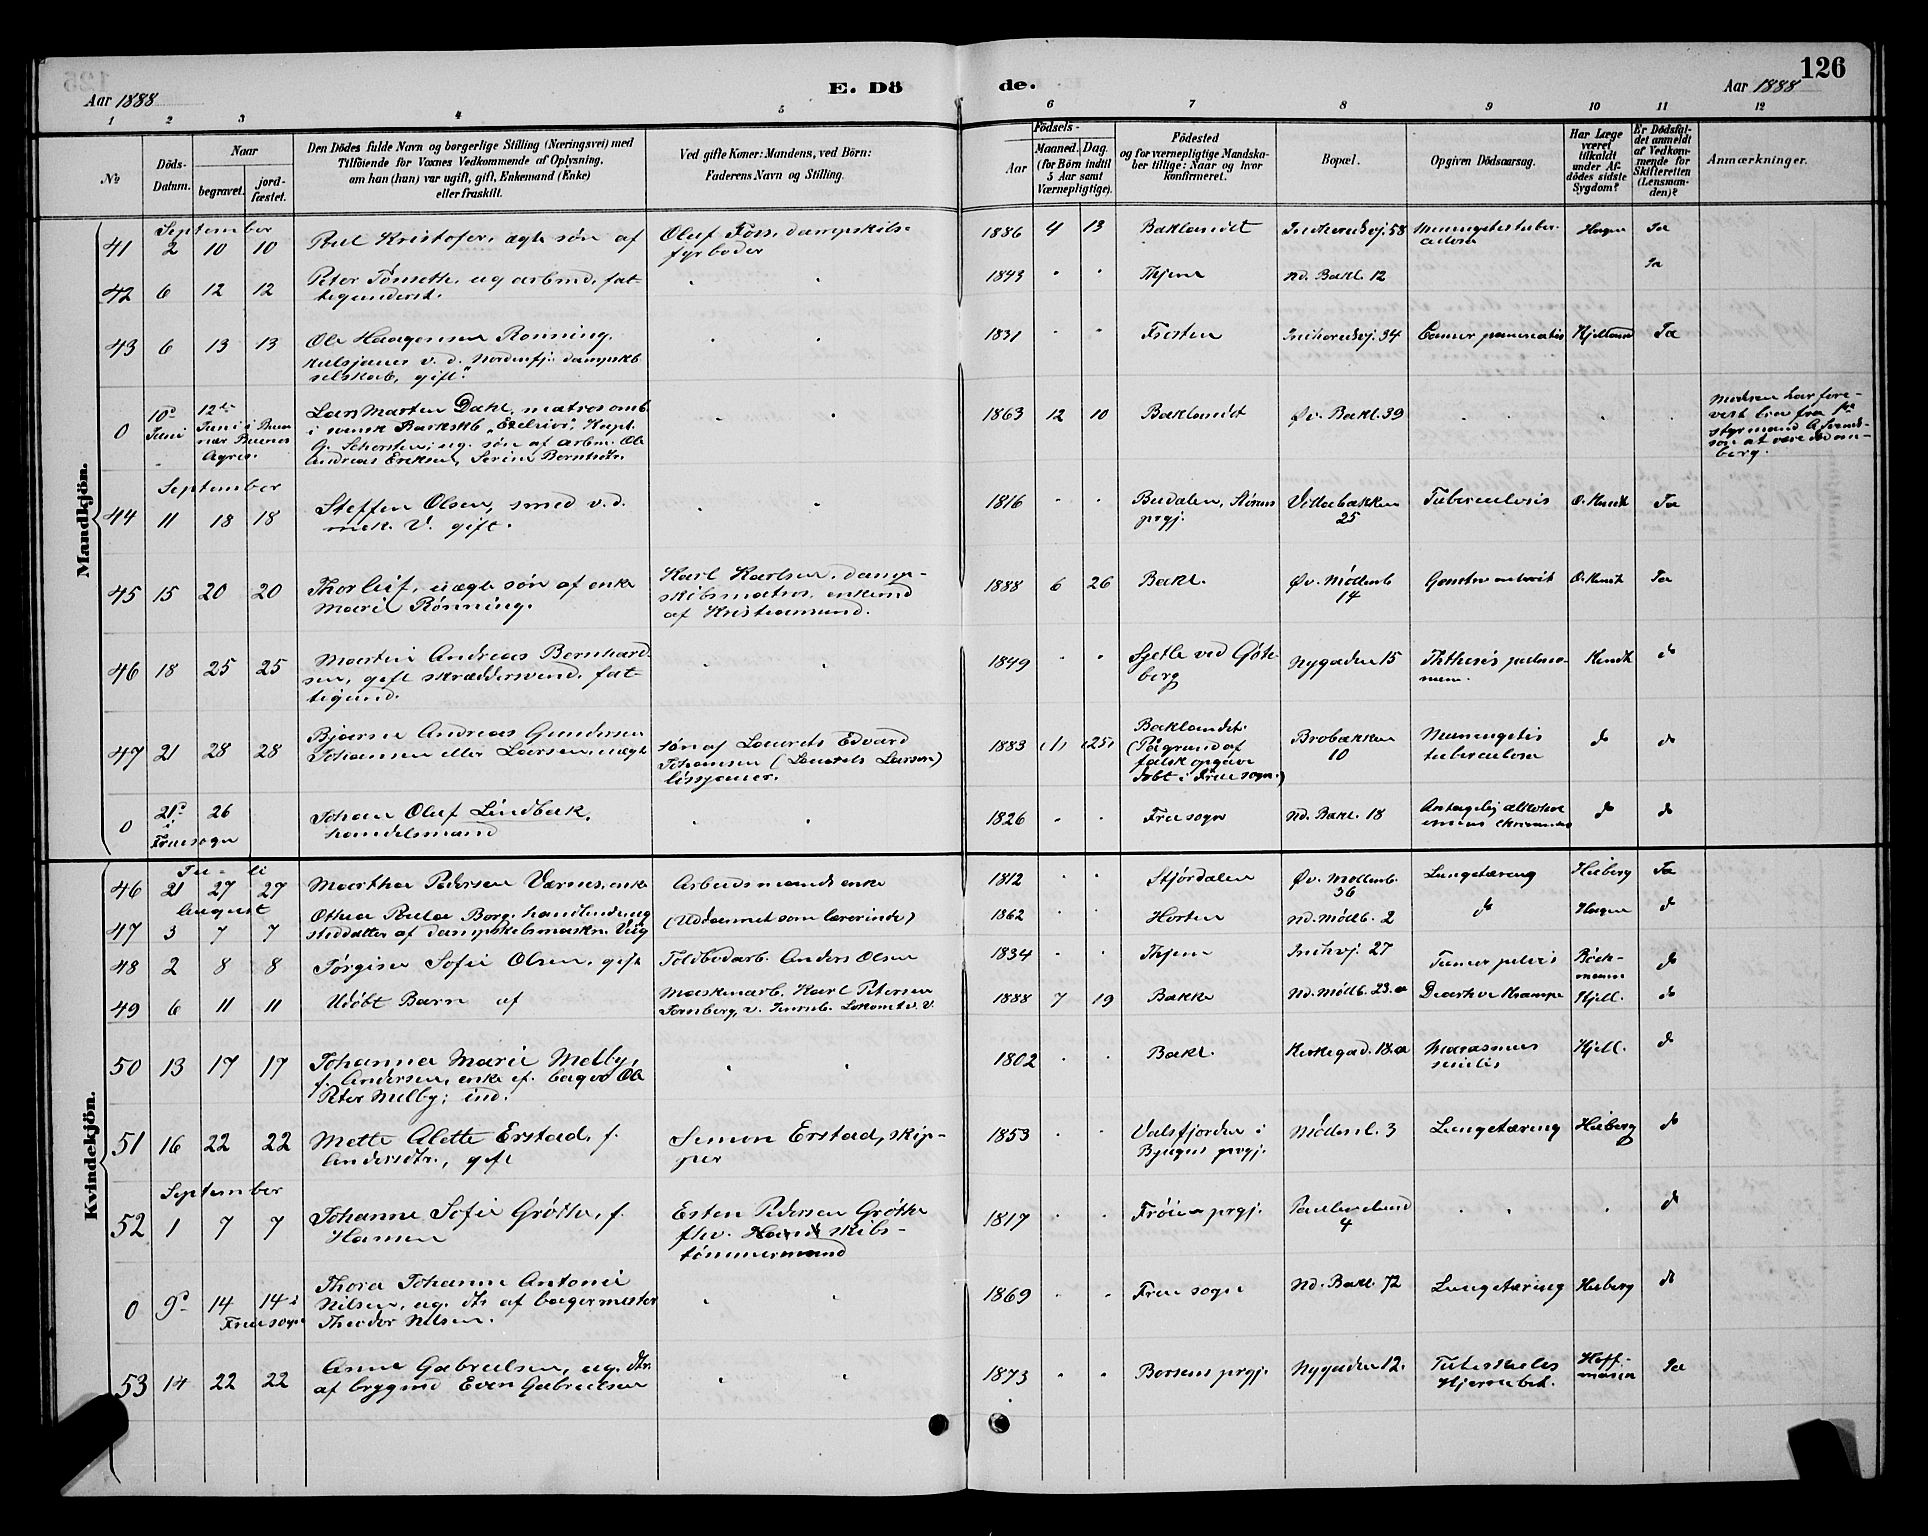 126
Aar 1888
E. Dö
de.
Aar 1888
1 2 3 4 5 6 7 8 9 10 11 12
№
Döds-
Datum.
Naar
begravet.
jord-
fæstet.
Den Dödes fulde Navn og borgerlige Stilling (Næringsvei) med
Tilföiende for Voxnes Vedkommende af Oplysning,
om han (hun) var ugift, gift, Enkemand (Enke)
eller fraskilt.
Ved gifte Koner: Mandens, ved Börn:
Faderens Navn og Stilling.
Födsels-
Aar
Maaned. Dag.
(for Börn indtil
5 Aar samt
Værnepligtige).
Födested
og for værnepligtige Mandska-
ber tillige: Naar og hvor
konfirmeret.
Bopæl.
Opgiven Dödsaarsag.
Har Læge
været
tilkaldt
under Af-
dödes sidste
Sygdom?
Er Dödsfal-
det anmeldt
af Vedkom-
mende for
Skifteretten
(Lensman-
den)?
Anmærkninger.
Mandkjön.
September
41 2 10 10 Kristofer, ægte søn af Oluf Foss, dampskibs-
fyrbøder 1886 4 13 Baklandet Indherredsvj. 58 Meningitis tuber-
culosa Hagen Ja
42 6 12 12 Peter Tønseth, ug arbmd, fat-
tigunderst. 1843 Hjem Nd. Bakl. 12 Ja
43 6 13 13 Ole Haagensen Rønning,
v. d. Nordenfj. dampskb
selskab, gift. 1831 Indherredsvj. 34 Cancer pancreatis Ja
0 10de
Juni 12te
Juni i Bue-
nos Ayres. Lars Martin Dahl, matros omb.
i svensk Barkskb „Exelsior", Kapt.
G. ug. søn af arbm. Ole
Andreas Eriksen, Serine Berntsdtr. 1863 12 10 Baklandet Øv. Bakl. 39 Moderen har fore-
vist brev fra
styrmand
son at være død om-
berg.
September
44 11 18 18 Steffen Olsen, smed v. d.
mek. V. gift. 1816 Budalen, Størens
prgj. Vollabakken
25 Tuberculosis Ja
45 15 20 20 Thorleif, uægte søn af enke
Marie Rønning. Karl Karlsen, damp-
skibsmatros, enkemd
af Kristiansund. 1888 6 26 Bakl. Øv. Møllenb
14 Gastro enterit Ja
46 18 25 25 Martin Andreas Bernhard-
sen, gift skræddersvend, fat-
tigund. 1849 ved Göte-
berg Nygaden 15 Phthisis pulmo-
num. do
47 21 28 28 Bjarne Andreas Gundersen
Johansen eller Larsen, uægte søn af Laurits Edvard
Johansen (Laurits Larsen)
1883 (1) (25) Baklandet
(På grund af
falsk opgave
døbt i Frue sogn.) Brobakken
10 Meningitis
tuberculosa do do
0 21de
i
Fruesogn 26 Johan Oluf Lindbæk,
handelsmand 1826 Frue sogn Nd. Bakl. 18 Antagelig alkohol do do
Kvindekjön.
Juli
46 21 27 27 Martha Pedersen Værnes, enke Arbeidsmands enke 1812 Stjørdalen Øv. Møllenb.
36 Lungetæring Heiberg Ja
August
47 3 7 7 Othea Paula Borg, handlende, ug
steddatter af dampskibsmaskn. (Uddannet som lærerinde) 1862 Horten Nd. Møllb. 2 do Hagen do
48 2 8 8 Jørgine Sofie Olsen, gift Toldbodarb. Anders Olsen 1834 Hjem Indhvj. 27 Tumor pelvis Böck-
mann do
49 6 11 11 Udøbt Barn af Maskinarb. Karl Petersen
Tornberg, v. Lokomtv. V. 1888 7 19 Bakke Nd. Møllb. 23.a Diarrhoe Krampe Hjell. do
50 13 17 17 Johanna Marie Melby,
f. Andersen, enke ef. bager Ole
Peter Melby; ind. 1802 Bakl. Kirkegad. 18.a Marasmus
senilis Hjell. do
51 16 22 22 Mette Alette Erstad, f.
Andersdtr., gift Simon Erstad, skip-
per 1853 Valsfjorden i
Bjugns prgj. Møllenl. 3 Lungetæring Heiberg do
September
52 1 7 7 Johanne Sofie Grøtte, f.
Hansen Esten Pedersen Grøtte
fhv. skibs-
tømmermand 1817 Frøien prgj. 4 do
0 9de 14 14 i
Frue sogn Thora Johanne Antonie
Nilsen, ug. dtr. af bagermester
Theodor Nilsen. 1869 Frue sogn Nd. Bakl. 72 Lungetæring Heiberg do
53 14 22 22 Anna Gabrielsen, ug. dtr.
af brygmd Even Gabrielsen 1873 Børsens prgj. Nygaden 12. Hoff-
mann Ja